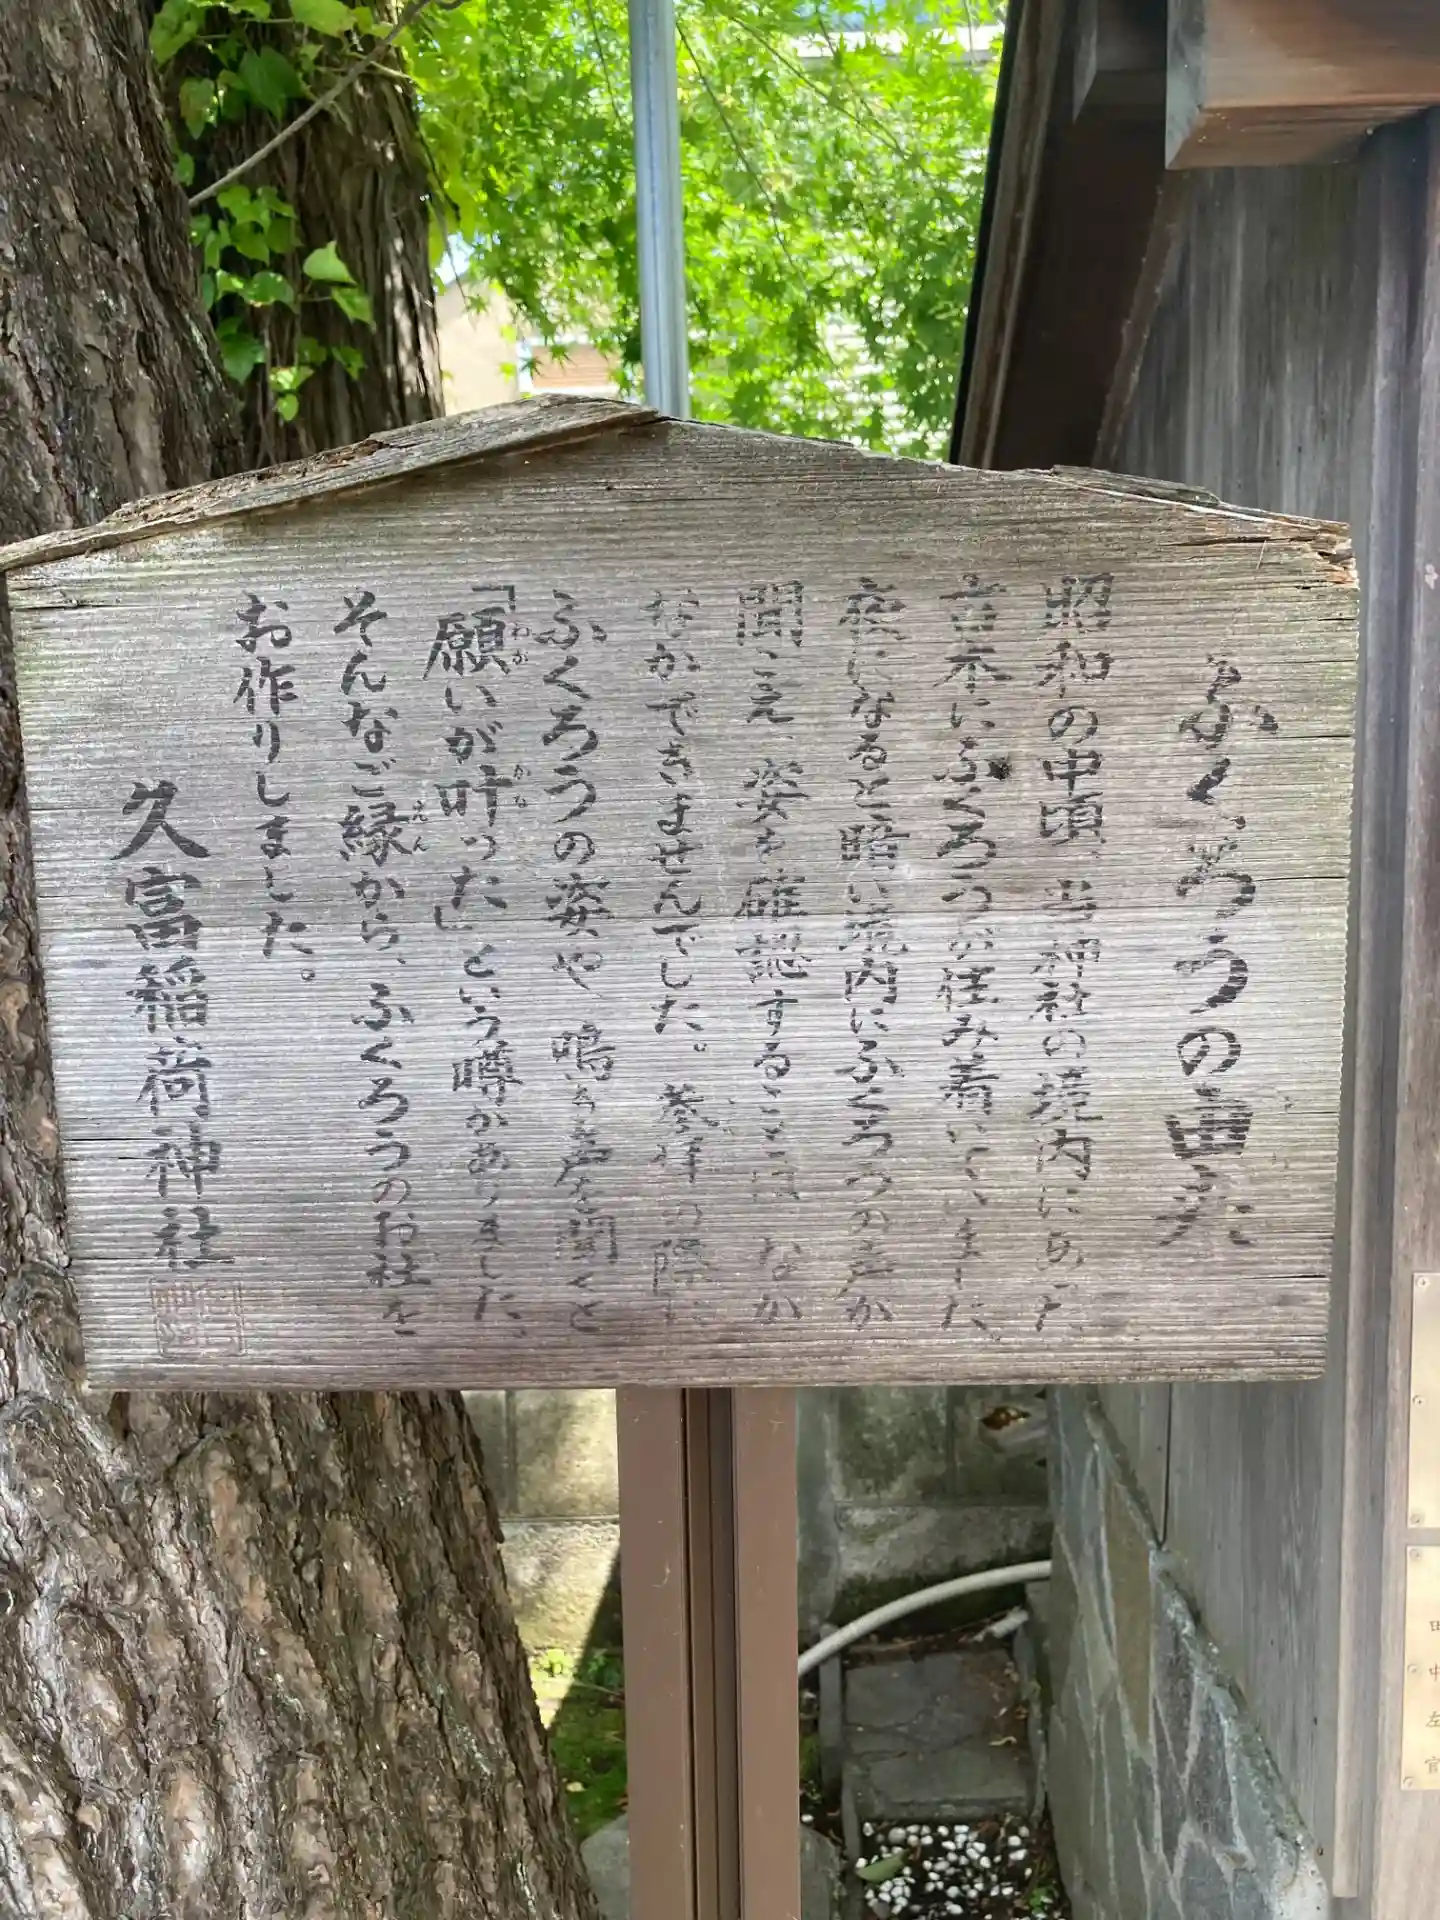 ふくろうの由来
昭和の中頃、当神社の境内にあった
古木にふくろうが住み着いていました。
夜になると暗い境内にふくろうの声が
聞こえ、姿を確認することは、なか
なかできませんでした。参拝の際に
ふくろうの姿や、鳴き声を聞くと
「願いが叶った」という噂がありました。
ねが
かな
そんなご縁から、ふくろうのお社を
えん
お作りしました。
久富稲荷神社
田中左官